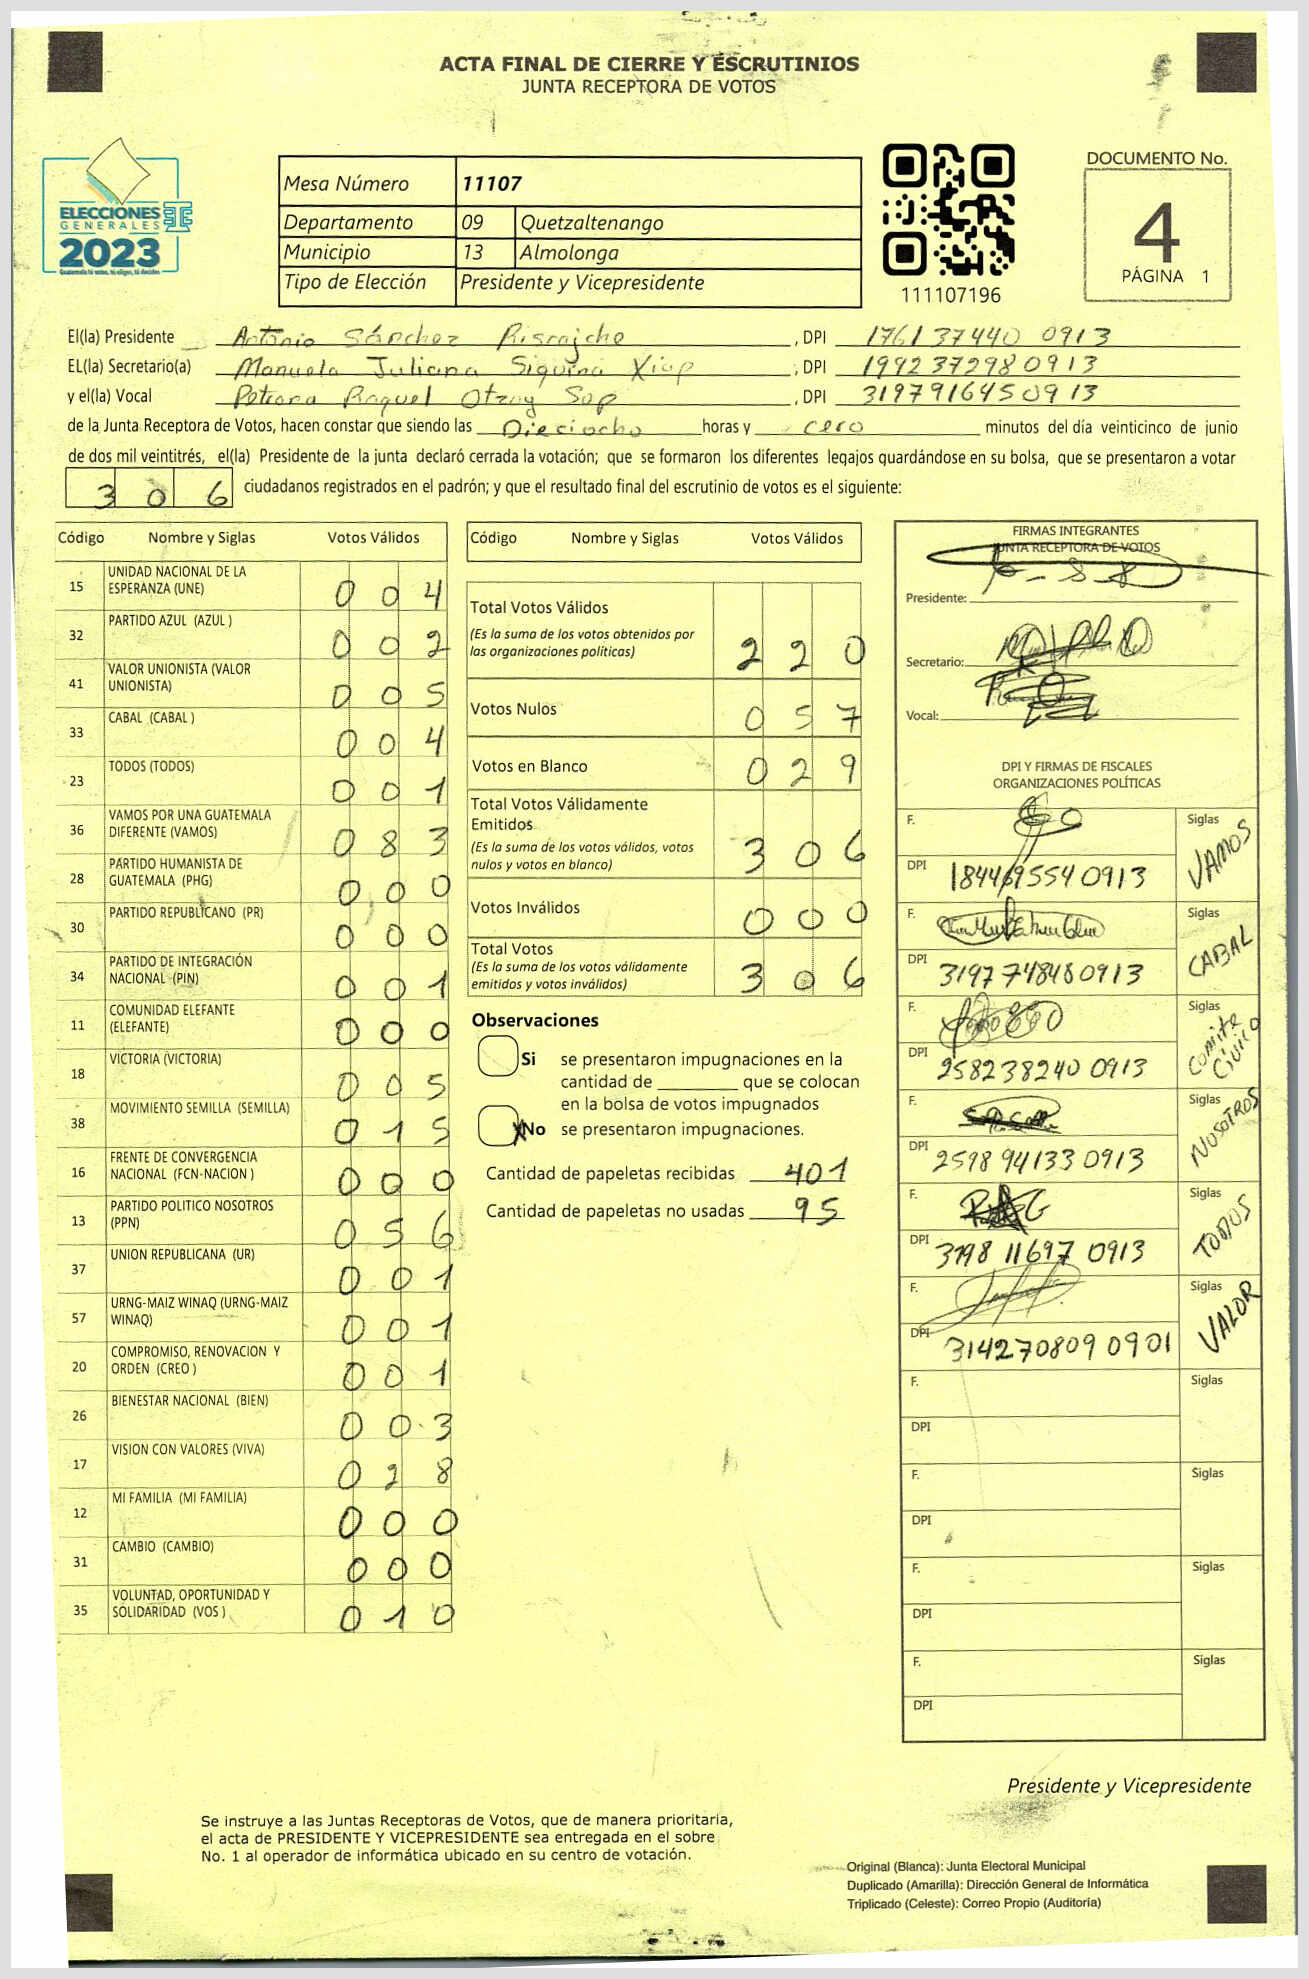 ACTA FINAL DE CIERRE Y ESCRUTINIOS
JUNTA RECEPTORA DE VOTOS
ELECCIONES
GENERALES
2023
Guatemala tú votas, tú eliges, tú decides
Mesa Número 11107
Departamento 09 Quetzaltenango
Municipio 13 Almolonga
Tipo de Elección Presidente y Vicepresidente
111107196
DOCUMENTO No.
4
PÁGINA 1
El(la) Presidente Antonio Sánchez Riscajche , DPI 1761 37440 0913
EL(la) Secretario(a) Manuela Juliana Siquina Xiap , DPI 1992 37298 0913
y el(la) Vocal Petrona Raquel Otzoy Sop , DPI 3197 91645 0913
de la Junta Receptora de Votos, hacen constar que siendo las Dieciocho horas y cero minutos del día veinticinco de junio
de dos mil veintitrés, el(la) Presidente de la junta declaró cerrada la votación; que se formaron los diferentes legajos guardándose en su bolsa, que se presentaron a votar
306 ciudadanos registrados en el padrón; y que el resultado final del escrutinio de votos es el siguiente:
Código Nombre y Siglas Votos Válidos
15 UNIDAD NACIONAL DE LA ESPERANZA (UNE) 004
32 PARTIDO AZUL (AZUL ) 002
41 VALOR UNIONISTA (VALOR UNIONISTA) 005
33 CABAL (CABAL ) 004
23 TODOS (TODOS) 001
36 VAMOS POR UNA GUATEMALA DIFERENTE (VAMOS) 083
28 PARTIDO HUMANISTA DE GUATEMALA (PHG) 000
30 PARTIDO REPUBLICANO (PR) 000
34 PARTIDO DE INTEGRACIÓN NACIONAL (PIN) 001
11 COMUNIDAD ELEFANTE (ELEFANTE) 000
18 VICTORIA (VICTORIA) 005
38 MOVIMIENTO SEMILLA (SEMILLA) 015
16 FRENTE DE CONVERGENCIA NACIONAL (FCN-NACION ) 000
13 PARTIDO POLITICO NOSOTROS (PPN) 056
37 UNION REPUBLICANA (UR) 001
57 URNG-MAIZ WINAQ (URNG-MAIZ WINAQ) 001
20 COMPROMISO, RENOVACION Y ORDEN (CREO ) 001
26 BIENESTAR NACIONAL (BIEN) 003
17 VISION CON VALORES (VIVA) 028
12 MI FAMILIA (MI FAMILIA) 000
31 CAMBIO (CAMBIO) 000
35 VOLUNTAD, OPORTUNIDAD Y SOLIDARIDAD (VOS ) 010
Código Nombre y Siglas Votos Válidos
Total Votos Válidos 220
(Es la suma de los votos obtenidos por
las organizaciones políticas)
Votos Nulos 057
Votos en Blanco 029
Total Votos Válidamente
Emitidos 306
(Es la suma de los votos válidos, votos
nulos y votos en blanco)
Votos Inválidos 000
Total Votos 306
(Es la suma de los votos válidamente
emitidos y votos inválidos)
Observaciones
Si se presentaron impugnaciones en la
cantidad de ________ que se colocan
en la bolsa de votos impugnados
X No se presentaron impugnaciones.
Cantidad de papeletas recibidas 401
Cantidad de papeletas no usadas 95
FIRMAS INTEGRANTES
JUNTA RECEPTORA DE VOTOS
Presidente:
Secretario:
Vocal:
DPI Y FIRMAS DE FISCALES
ORGANIZACIONES POLÍTICAS
F. Siglas VAMOS
DPI 1844 69554 0913
F. Siglas CABAL
DPI 3197 74848 0913
F. Siglas Comite Civico
DPI 2582 38240 0913
F. Siglas NOSOTROS
DPI 2598 94133 0913
F. Siglas TODOS
DPI 3198 11697 0913
F. Siglas VALOR
DPI 3142 70809 0901
F. Siglas
DPI
F. Siglas
DPI
F. Siglas
DPI
F. Siglas
DPI
Presidente y Vicepresidente
Se instruye a las Juntas Receptoras de Votos, que de manera prioritaria,
el acta de PRESIDENTE Y VICEPRESIDENTE sea entregada en el sobre
No. 1 al operador de informática ubicado en su centro de votación.
Original (Blanca): Junta Electoral Municipal
Duplicado (Amarilla): Dirección General de Informática
Triplicado (Celeste): Correo Propio (Auditoría)